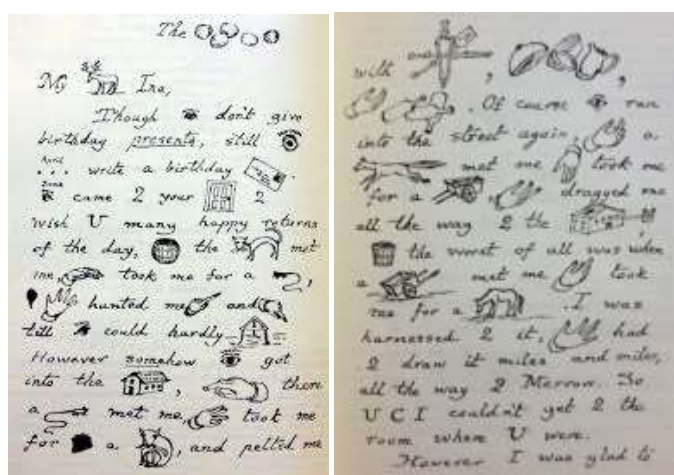 The
My Ina,
Though don't give
birthday presents, still
April
... write a birthday
June
came 2 your 2
wish U many happy returns
of the day, the met
me, took me for a ,
hunted me and
till could hardly
However somehow got
into the , there
a met me, took me
for a , and pelted me
with , ,
. Of course ran
into the street again, a
met me took me
for a , dragged me
all the way 2 the
the worst of all was when
a met me took
me for a . I was
harnessed 2 it, had
2 draw it miles and miles,
all the way 2 Merrow. So
U C I couldn't get 2 the
room where U were.
However I was glad to